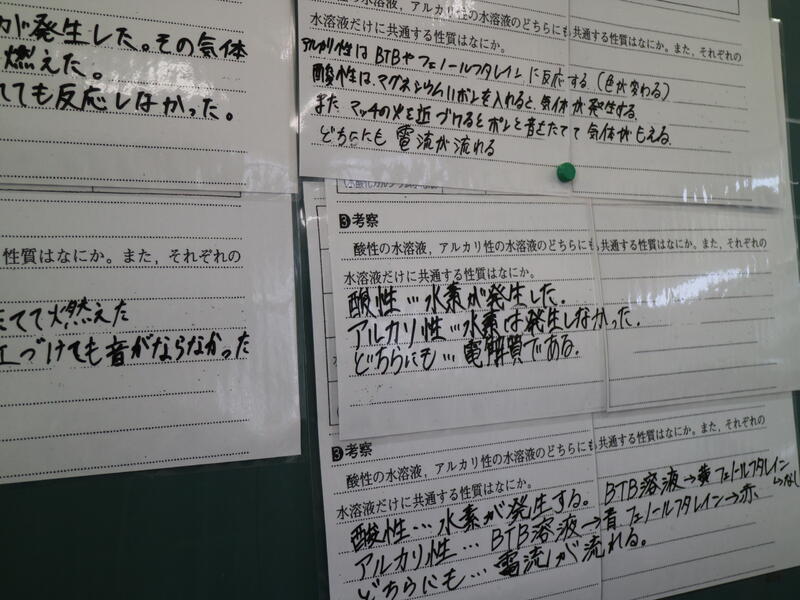 が発生した。その気体
燃えた。
ても反応しなかった。
性質はなにか。また，それぞれの
たてて燃えた
づけても音がならなかった
水溶液，アルカリ性の水溶液のどちらにも共通する性質はなにか。また，それぞれの
水溶液だけに共通する性質はなにか。
アルカリ性はBTBやフェノールフタレインに反応する(色が変わる)
酸性は、マグネシウムリボンを入れると、気体が発生する。
また マッチの火を近づけるとポンと音をたてて気体がもえる。
どちらにも 電流が流れる
3 考察
酸性の水溶液，アルカリ性の水溶液のどちらにも共通する性質はなにか。また，それぞれの
水溶液だけに共通する性質はなにか。
酸性…水素が発生した。
アルカリ性…水素は発生しなかった。
どちらにも…電解質である。
3 考察
酸性の水溶液，アルカリ性の水溶液のどちらにも共通する性質はなにか。また，それぞれの
水溶液だけに共通する性質はなにか。
酸性…水素が発生する。 BTB溶液→黄 フェノールフタレイン→なし
アルカリ性…BTB溶液→青 フェノールフタレイン→赤、
どちらにも…電流が流れる。